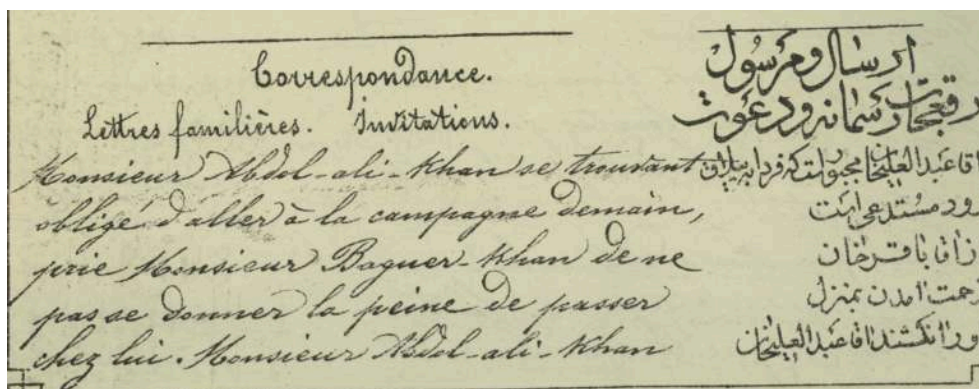 Correspondance.
Lettres familières. Invitations.
Monsieur Abdol-ali-Khan se trouvant
obligé d'aller à la campagne demain,
prie Monsieur Baguer-Khan de ne
pas se donner la peine de passer
chez lui. Monsieur Abdol-ali-Khan
ارسال و مرسول
رقعجات رسمانه و دعوت
اقا عبدالعلیخان مجبور است که فردا به ییلاق
رود مستدعی است
اقا باقرخان
زحمت امدن بمنزل
او را نکشند اقا عبدالعلیخان